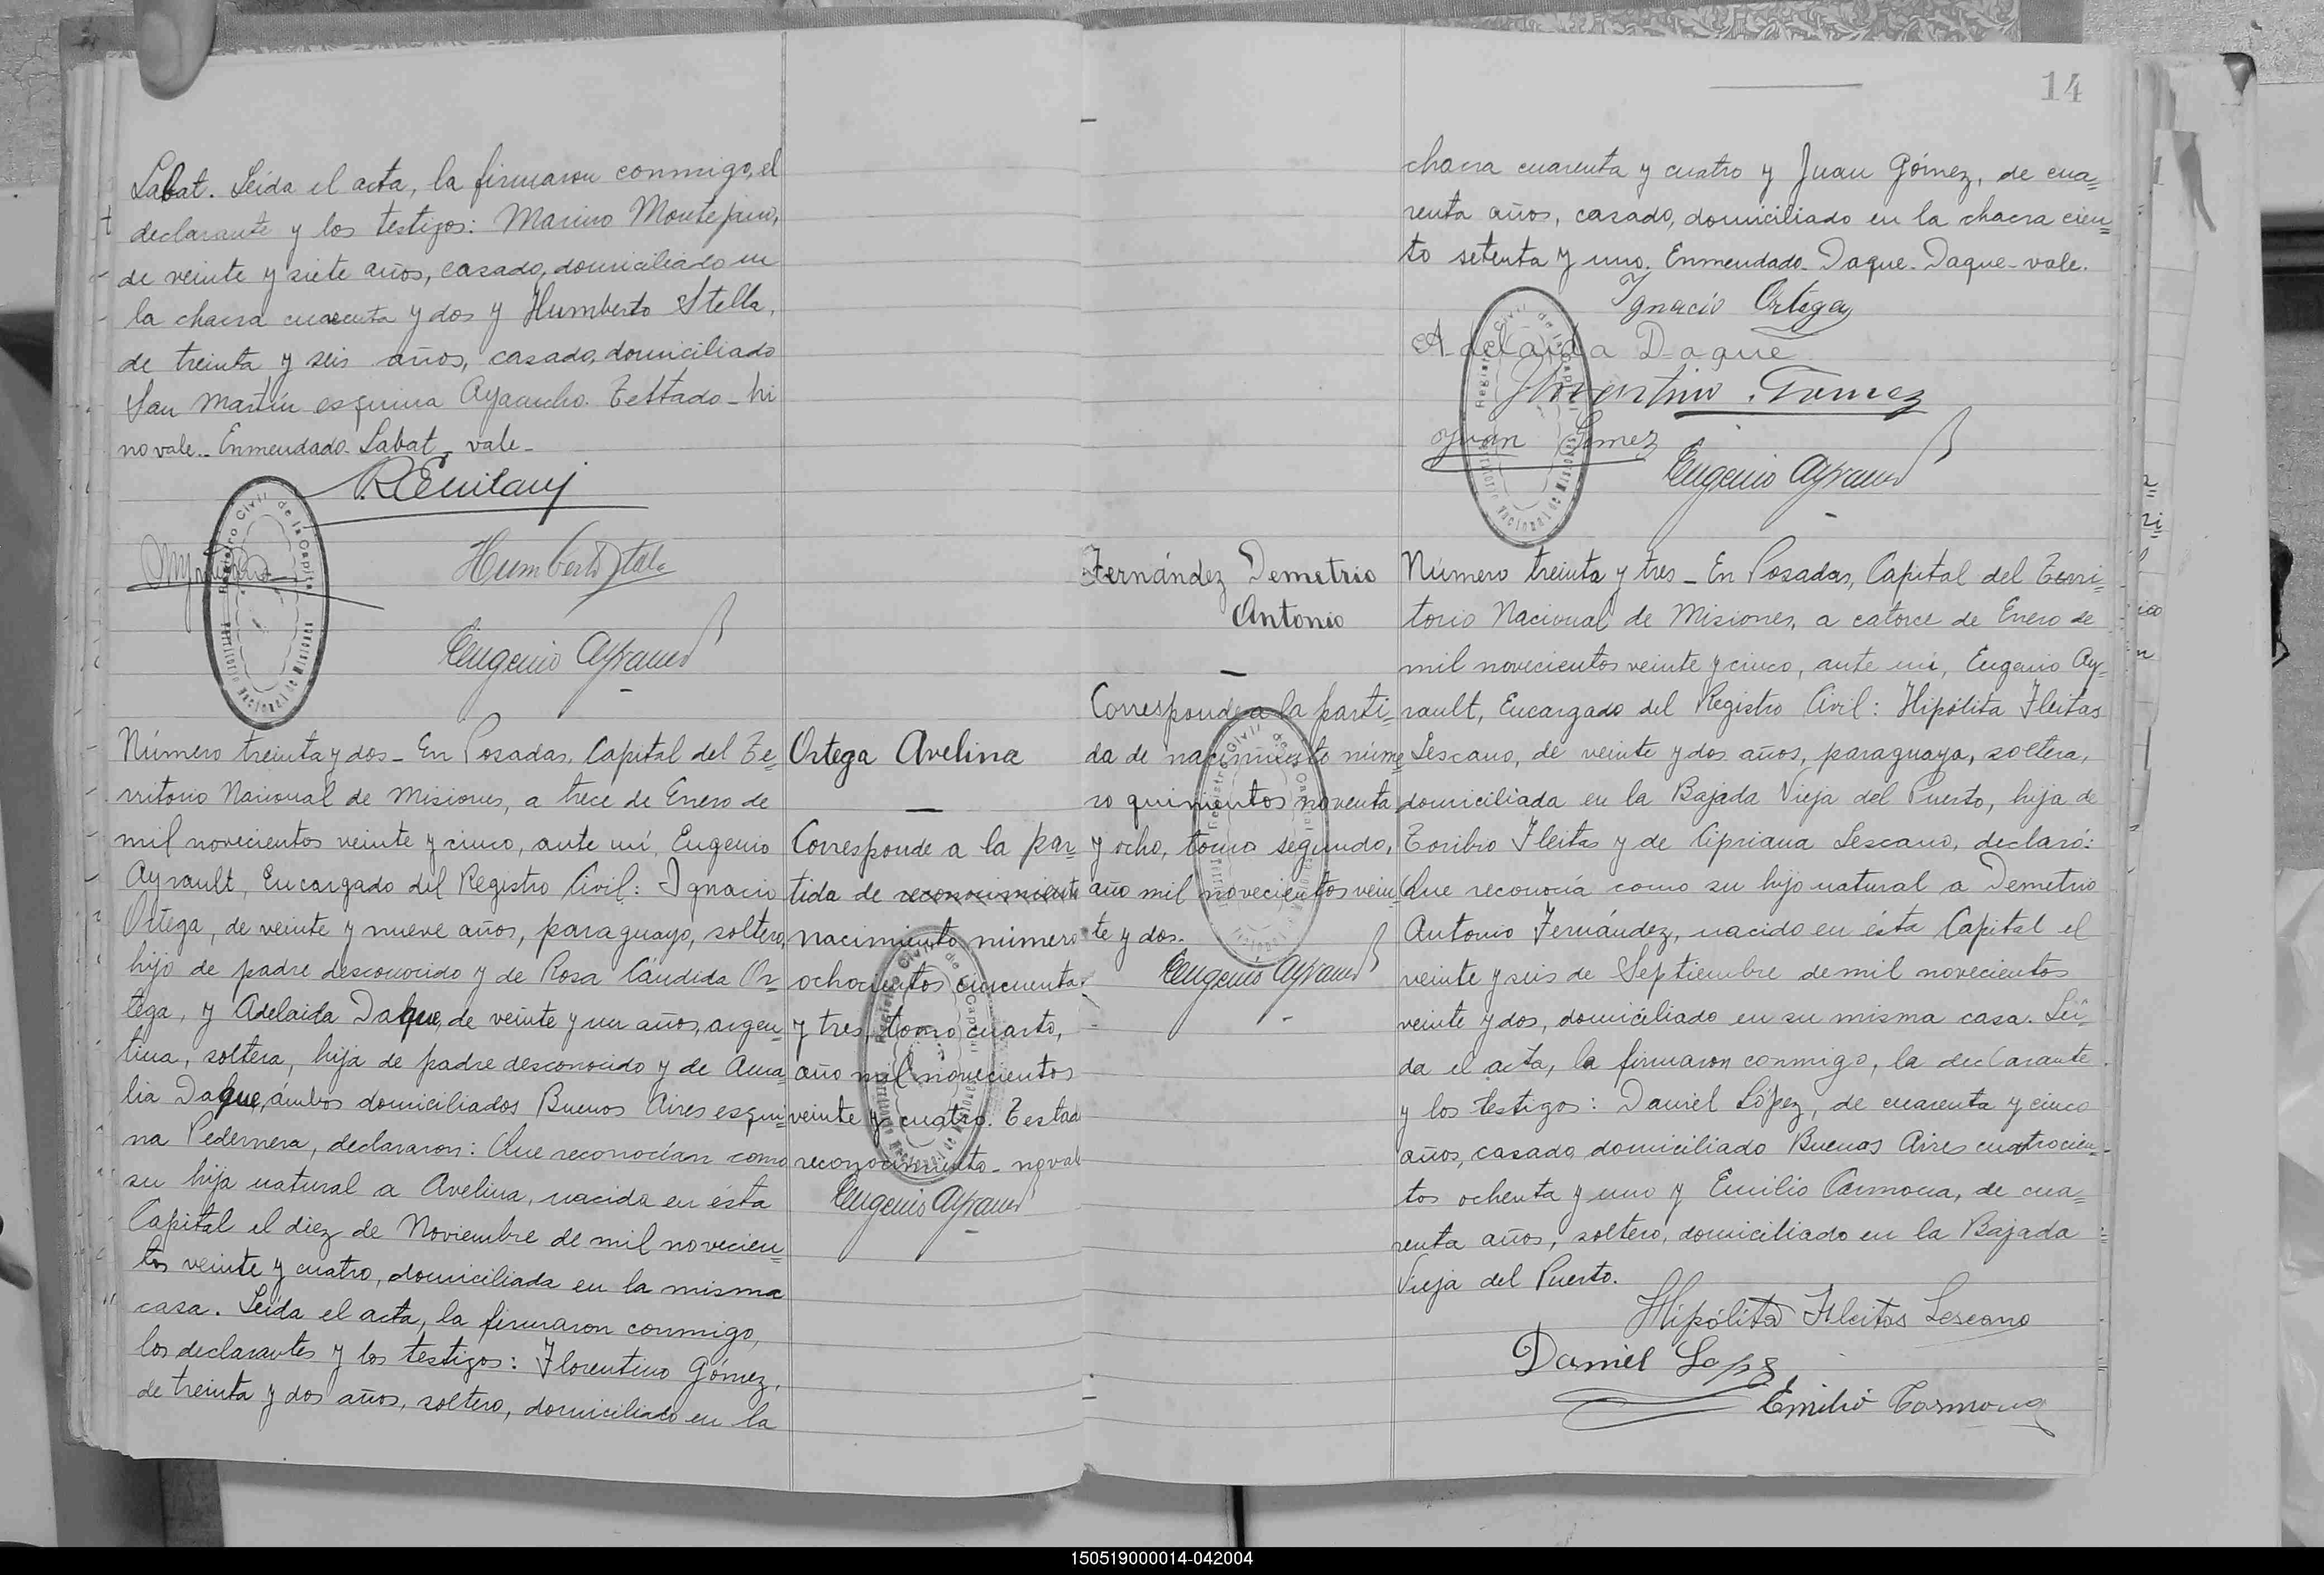 Labat. Leída el acta, la firmaron conmigo, el
declarante y los testigos: Marino Montejano,
de veinte y siete años, casado, domiciliado en
la chacra cuarenta y dos y Humberto Stella,
de treinta y seis años, casado, domiciliado
San Martín esquina Ayacucho. Testado - hi
no vale.. Enmendado - Labat - vale -
Humberto Stella
Eugenio Ayrault
Registro Civil de la Capital
Territorio Nacional de Misiones
Número treinta y dos - En Posadas, Capital del Te=
rritorio Nacional de Misiones, a trece de Enero de
mil novecientos veinte y cinco, ante mí, Eugenio
Ayrault, Encargado del Registro Civil: Ignacio
Ortega, de veinte y nueve años, paraguayo, soltero,
hijo de padre desconocido y de Rosa Cándida Or=
tega, y Adelaida Daque, de veinte y un años, argen=
tina, soltera, hija de padre desconocido y de Ama=
lia Daque, ámbos domiciliados Buenos Aires esqui=
na Pedernera, declararon: Que reconocían como
su hija natural a Avelina, nacida en ésta
Capital el diez de Noviembre de mil novecien=
tos veinte y cuatro, domiciliada en la misma
casa. Leída el acta, la firmaron conmigo,
los declarantes y los testigos: Florentino Gómez,
de treinta y dos años, soltero, domiciliado en la
Ortega Avelina
Corresponde a la par=
tida de reconocimiento
nacimiento número
ochocientos cincuenta
y tres, tomo cuarto,
año mil novecientos
veinte y cuatro. Testad
reconocimiento - no vale
Eugenio Ayrault
14
chacra cuarenta y cuatro y Juan Gómez, de cua=
renta años, casado, domiciliado en la chacra cien=
to setenta y uno. Enmendado - Daque - Daque - vale.
Ignacio Ortega
Adelaida Daque
Florentino Gomez
Juan Gomez
Eugenio Ayrault
Registro Civil de la Capital
Territorio Nacional de Misiones
Fernández Demetrio
Antonio
Corresponde a la parti=
da de nacimiento núme
ro quinientos noventa
y ocho, tomo segundo,
año mil novecientos vein
te y dos.
Eugenio Ayrault
Número treinta y tres - En Posadas, Capital del Terri=
torio Nacional de Misiones, a catorce de Enero de
mil novecientos veinte y cinco, ante mí, Eugenio Ay=
rault, Encargado del Registro Civil: Hipólita Fleitas
Lescano, de veinte y dos años, paraguaya, soltera,
domiciliada en la Bajada Vieja del Puerto, hija de
Toribio Fleitas y de Cipriana Lescano, declaró:
Que reconocía como su hijo natural a Demetrio
Antonio Fernández, nacido en ésta Capital el
veinte y seis de Septiembre de mil novecientos
veinte y dos, domiciliado en su misma casa. Leí=
da el acta, la firmaron conmigo, la declarante
y los testigos: Daniel López, de cuarenta y cinco
años, casado, domiciliado Buenos Aires cuatrocien=
tos ochenta y uno y Emilio Carmona, de cua=
renta años, soltero, domiciliado en la Bajada
Vieja del Puerto.
Hipólita Fleitas Lescano
Daniel Lopez
Emilio Carmona
150519000014-042004